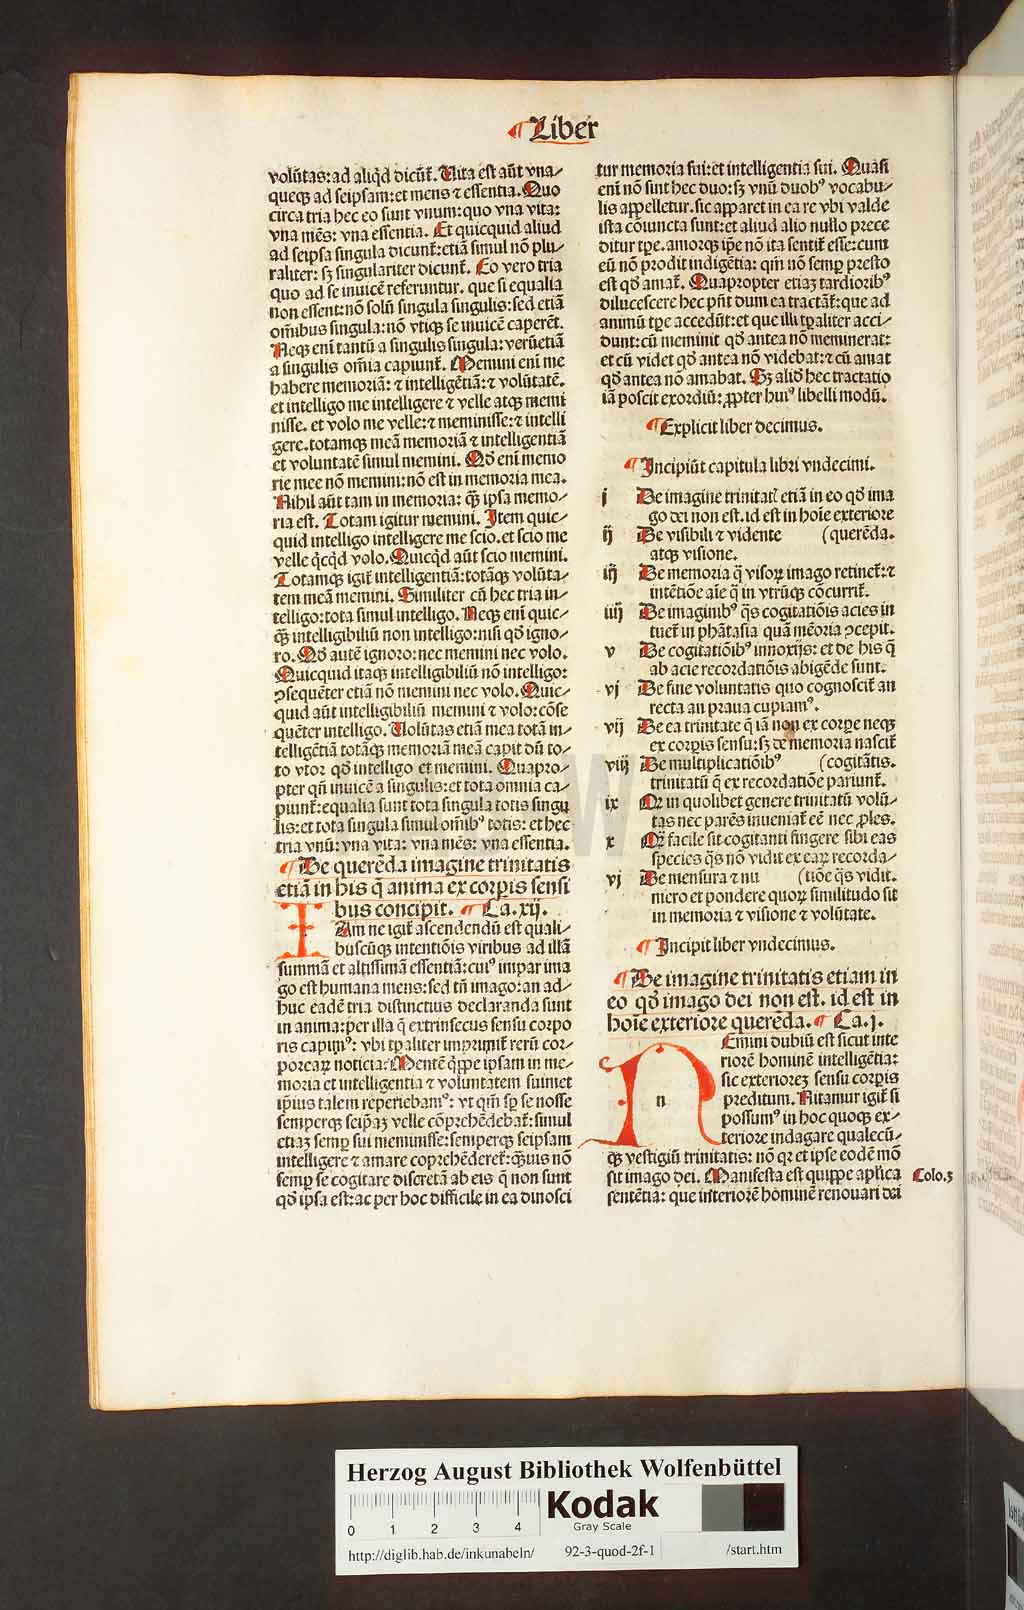 ¶Liber
volūtas: ad aliqd dicūt̄. Uita est aūt vna⸗
queqꝫ ad seipsam: et mens ⁊ essentia. Quo
circa tria hec eo sunt vnum: quo vna vita:
vna mēs: vna essentia. Et quicquid aliud
ad seipsa singula dicunt̄: etiā simul nō plu⸗
raliter: sꝫ singulariter dicunt̄. Eo vero tria
quo ad se inuicē referuntur. que si equalia
non essent: nō solū singula singulis: sed etiā
om̄ibus singula: nō vtiqꝫ se inuicē caperēt.
Neqꝫ eni tantū a singulis singula: verūetiā
a singulis om̄ia capiunt̄. Memini eni me
habere memoriā: ⁊ intelligētiā: ⁊ volūtatē.
et intelligo me intelligere ⁊ velle atqꝫ memi
nisse. et volo me velle: ⁊ meminisse: ⁊ intelli
gere. totamqꝫ meā memoriā ⁊ intelligentiā
et voluntatē simul memini. Qd̄ eni memo
rie mee nō memini: nō est in memoria mea.
Nihil aūt tam in memoria: qꝫ ipsa memo⸗
ria est. Totam igitur memini. Item quic⸗
quid intelligo intelligere me scio. et scio me
velle q̄cqd volo. Quicqd aūt scio memini.
Totamqꝫ igit̄ intelligentiā: totāqꝫ volūta⸗
tem meā memini. Similiter cū hec tria in⸗
telligo: tota simul intelligo. Neqꝫ eni quic⸗
qꝫ intelligibiliū non intelligo: nisi qd̄ igno⸗
ro. Qd̄ autē ignoro: nec memini nec volo.
Quicquid itaqꝫ intelligibiliū nō intelligo:
ꝯsequēter etiā nō memini nec volo. Quic⸗
quid aūt intelligibiliū memini ⁊ volo: cōse
quēter intelligo. Uolūtas etiā mea totā in⸗
telligētiā totāqꝫ memoriā meā capit dū to⸗
to vtor qd̄ intelligo et memini. Quapro⸗
pter qn̄ inuicē a singulis: et tota omnia ca⸗
piunt̄: equalia sunt tota singula totis singu
lis: et tota singula simul om̄ibꝰ totis: et hec
tria vnū: vna vita: vna mēs: vna essentia.
¶De querēda imagine trinitatis
etiā in his q̄ anima ex corpis sensi
bus concipit. ¶Ca. xij.
IAm ne igit̄ ascendendū est quali⸗
buscūqꝫ intentiōis viribus ad illā
summā et altissimā essentiā: cuiꝰ impar ima
go est humana mens: sed tn̄ imago: an ad⸗
huc eadē tria distinctius declaranda sunt
in anima: per illa q̄ extrinsecus sensu corpo
ris capimꝰ: vbi tꝑaliter imprimit̄ rerū cor⸗
porearꝝ noticia: Mentē q̄ppe ipsam in me⸗
moria et intelligentia ⁊ voluntatem suimet
ipsius talem reperiebamꝰ: vt qm̄ sꝑ se nosse
semperqꝫ seipsaꝫ velle cōprehēdebat̄: simul
etiaꝫ semꝑ sui meminisse: semperqꝫ seipsam
intelligere ⁊ amare coprehēderet̄: qꝫuis nō
semꝑ se cogitare discretā ab eis q̄ non sunt
qd̄ ipsa est: ac per hoc difficile in ea dinosci
tur memoria sui: et intelligentia sui. Quasi
eni nō sint hec duo: sꝫ vnū duobꝰ vocabu⸗
lis appelletur. sic apparet in ea re vbi valde
ista cōiuncta sunt: et aliud alio nullo prece
ditur tꝑe. amorqꝫ ipse nō ita sentit̄ esse: cum
eū nō prodit indigētia: qm̄ nō semꝑ presto
est qd̄ amat̄. Quapropter etiaꝫ tardioribꝰ
dilucescere hec pn̄t dum ea tractāt̄: que ad
animū tꝑe accedūt: et que illi tꝑaliter acci⸗
dunt: cū meminit qd̄ antea nō meminerat:
et cū videt qd̄ antea nō videbat: ⁊ cū amat
qd̄ antea nō amabat. Sꝫ aliō hec tractatio
iā poscit exordiū: ꝓpter huiꝰ libelli modū.
¶Explicit liber decimus.
¶Incipiūt capitula libri vndecimi.
j De imagine trinitatꝭ etiā in eo qd̄ ima
go dei non est. id est in hoīe exteriore
ij De visibili ⁊ vidente (querēda.
atqꝫ visione.
iij De memoria q̄ visorꝝ imago retinet̄: ⁊
intētiōe aīe q̄ in vtrūqꝫ cōcurrit̄.
iiij De imaginibꝰ q̄s cogitatiōis acies in
tuet̄ in phātasia quā mēoria ꝯcepit.
v De cogitatiōibꝰ innoxijs: et de his q̄
ab acie recordatiōis abigēde sunt.
vj De fine voluntatis quo cognoscit̄ an
recta an praua cupiamꝰ.
vij De ea trinitate q̄ iā non ex corpe neqꝫ
ex corpis sensu: sꝫ de memoria nascit̄
viij De multiplicatiōibꝰ (cogitātis.
trinitatū q̄ ex recordatiōe pariunt̄.
ix Qꝛ in quolibet genere trinitatū volū⸗
tas nec parēs inueniat̄ eē nec ꝓles.
x Qꝛ facile sit cogitanti fingere sibi eas
species q̄s nō vidit ex earꝝ recorda⸗
vj De mensura ⁊ nu (tiōe q̄s vidit.
mero et pondere quorꝝ similitudo sit
in memoria ⁊ visione ⁊ volūtate.
¶Incipit liber vndecimus.
¶De imagine trinitatis etiam in
eo qd̄ imago dei non est. id est in
hoīe exteriore querēda. ¶Ca. j.
n
NEmini dubiū est sicut inte
riorē hominē intelligētia:
sic exterioreꝫ sensu corpis
preditum. Nitamur igit̄ si
possumꝰ in hoc quoqꝫ ex⸗
teriore indagare qualecū⸗
qꝫ vestigiū trinitatis: nō qꝛ et ipse eodē mō
sit imago dei. Manifesta est quippe aplica
sentētia: que interiorē hominē renouari dei
Colo.3
Herzog August Bibliothek Wolfenbüttel
0 1 2 3 4
Kodak
Gray Scale
http://diglib.hab.de/inkunabeln/ 92-3-quod-2f-1 /start.htm